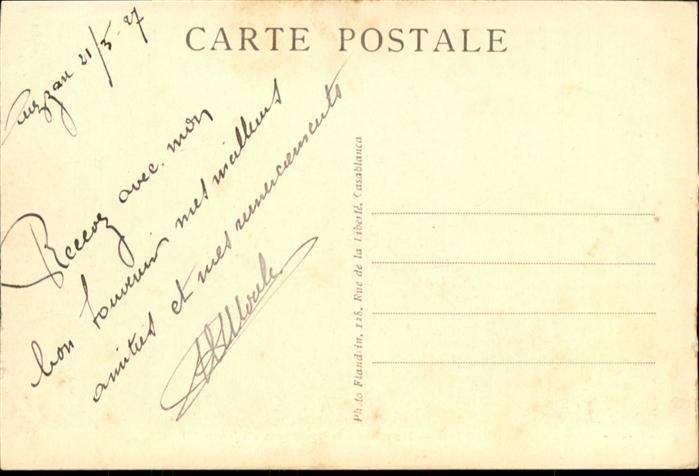 CARTE POSTALE
21/5-27
Recevez avec mon
bon souvenir mes meilleures
amitiés et mes remerciements
Photo Flandrin, 128, Rue de la Liberté, Casablanca